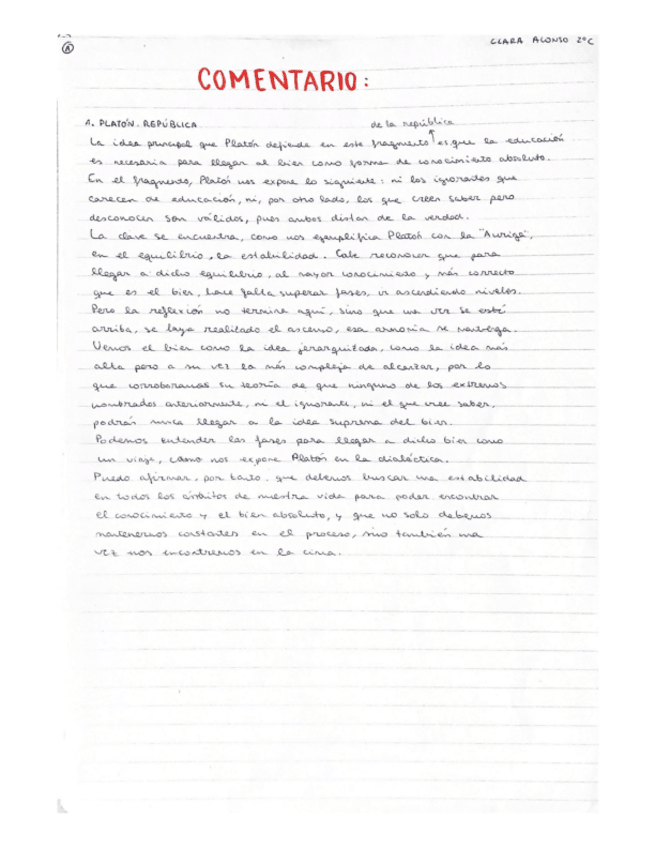 CLARA ALONSO 2ºC
COMENTARIO:
1. PLATÓN. REPÚBLICA
de la república
La idea principal que Platón defiende en este fragmento es que la educación
es necesaria para llegar al bien como forma de conocimiento absoluto.
En el fragmento, Platón nos expone lo siguiente: ni los ignorantes que
carecen de educación, ni, por otro lado, los que creen saber pero
desconocen son válidos, pues ambos distan de la verdad.
La clave se encuentra, como nos ejemplifica Platón con la "Auriga",
en el equilibrio, la estabilidad. Cabe reconocer que para
llegar a dicho equilibrio, al mayor conocimiento y más correcto
que es el bien, hace falta superar fases, ir ascendiendo niveles.
Pero la reflexión no termina aquí, sino que una vez se esté
arriba, se haya realizado el ascenso, esa armonía se mantenga.
Vemos el bien como la idea jerarquizada, como la idea más
alta pero a su vez la más compleja de alcanzar, por lo
que corroboramos su teoría de que ninguno de los extremos
nombrados anteriormente, ni el ignorante, ni el que cree saber,
podrán nunca llegar a la idea suprema del bien.
Podemos entender las fases para llegar a dicho bien como
un viaje, como nos expone Platón en la dialéctica.
Puedo afirmar, por tanto, que debemos buscar una estabilidad
en todos los ámbitos de nuestra vida para poder encontrar
el conocimiento y el bien absoluto, y que no solo debemos
mantenernos constantes en el proceso, sino también una
vez nos encontremos en la cima.